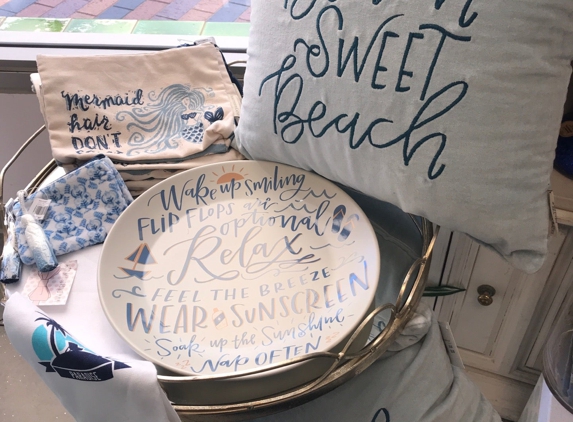 SWEET
Beach
Mermaid
hair
DON'T
Wake up smiling
FLIP FLOPS are
optional
Relax
FEEL THE BREEZE
WEAR SUNSCREEN
Soak up the Sunshine
NAP OFTEN
PARADISE